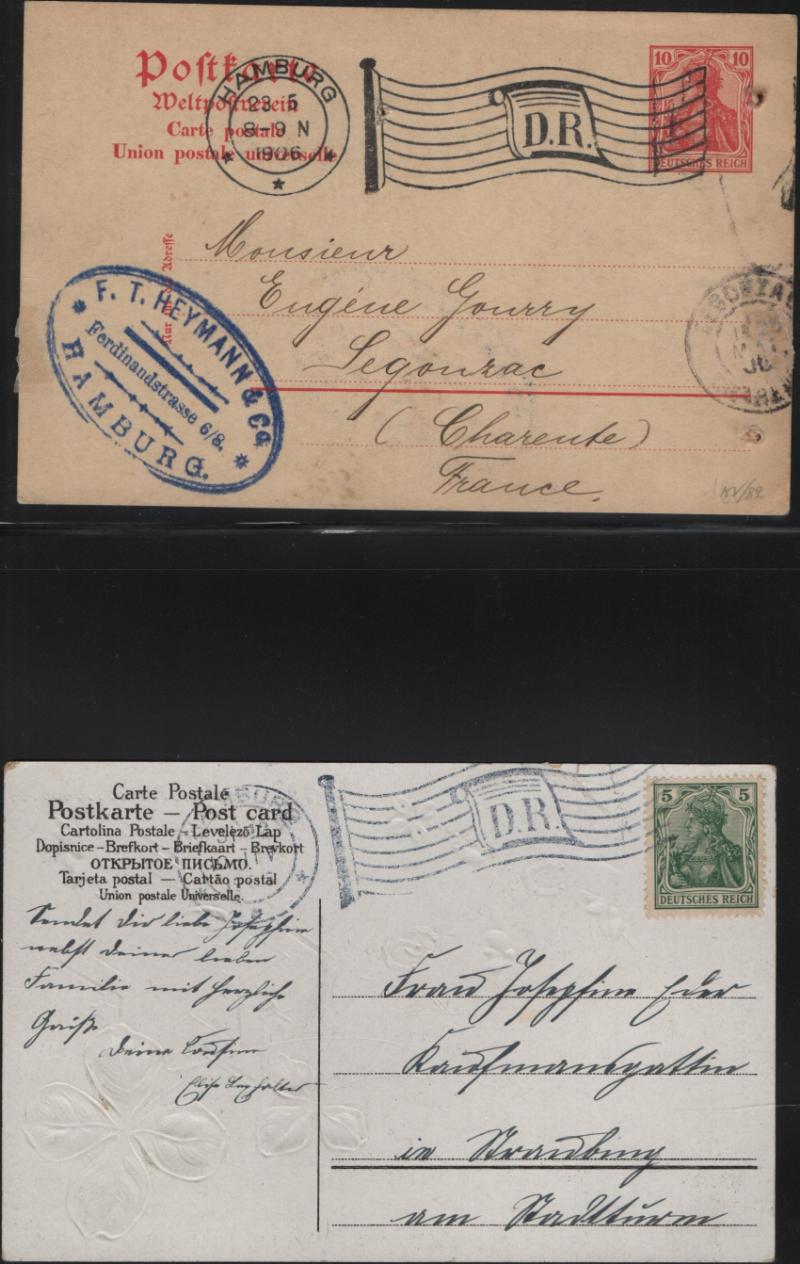 Postkarte
Weltpostverein
Carte postale
Union postale universelle
HAMBURG
23.5
8-9 N
1906
D.R.
10 10
DEUTSCHES REICH
Nur für die Adresse
Monsieur
Eugéne Gourry
Segonzac
(Charente)
France.
F. T. HEYMANN & Co.
Ferdinandstrasse 6/8.
HAMBURG.
SEGONZAC
MAI
06
Carte Postale
Postkarte – Post card
Cartolina Postale – Levelező Lap
Dopisnice – Brefkort – Briefkaart – Brevkort
ОТКРЫТОЕ ПИСЬМО.
Tarjeta postal – Cartão postal
Union postale Universelle.
HAMBURG
D.R.
5 5
DEUTSCHES REICH
Sendet dir liebe Josephine
nebst deiner lieben
Familie mit herzliche
Grüße
deine Cousine
Elise
Frau Josephine Eder
Kaufmansgattin
in Straubing
am Stadtturm